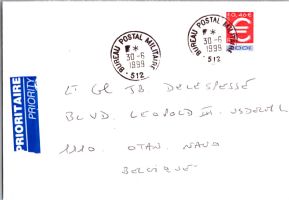 BUREAU POSTAL MILITAIRE
* 
30-6
1999
512
BUREAU POSTAL MILITAIRE
*
30-6
1999
512
0,46€
3,00F
PRIORITAIRE
PRIORITY
LT CL JB DELESPESSE
BLVD. LEOPOLD III.
1110. OTAN. NATO
BELGIQUE